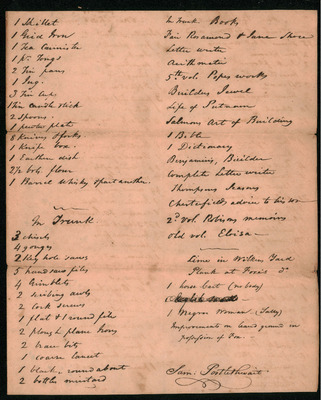 1 Skillet
1 Grid Iron
1 Tea Cannister
1 pr. Tongs
2 Tin pans
1 Jug
3 Tin
1 Tin candle stick
2 Spoons
1 pewter plate
8 Knives & forks
1 Knife box
1 Earthen dish
2½ bbls flour
1 Barrel Whisky & part another
In Trunk
3 chisels
4 gouges
2 Key hole saws
5 hand saw files
4 Gimblets
2 scribing awls
2 cork screws
1 flat & 1 round file
2 plough plane Irons
2 brace bits
1 coarse lancet
1 black roundabout
2 bottles mustard
In Trunk Books
Fair Rosamond & Jane Shore
Letter writer
Arithmatic
5th vol. Popes works
Builders Jewel
Life of Putnam
Salmons Art of Building
1 Bible
1 Dictionary
Benjamins, Builder
Complete Letter writer
Thompsons Seasons
Chesterfields advice to his son
2d vol Robisons memoirs
Old vol. Eloisa
Lime in Wilkins Yard
Plank at Do
1 horse cart (no body)
1 Negro Woman (Sally)
Improvements on leased ground in
possession of
Sam. Postlethwait